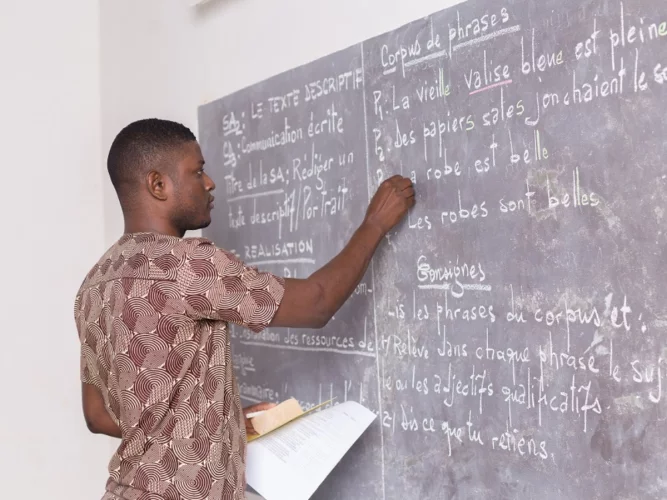 SA2: LE TEXTE DESCRIPTIF
Communication écrite
Titre de la SA: Rédiger un
texte descriptif/Portrait
REALISATION
des ressources de
Corpus de phrases
P1: La vieille valise bleue est pleine
P2: Des papiers sales jonchaient le
robe est belle
Les robes sont belles
Consignes
les phrases du corpus et:
1/ Relève dans chaque phrase le suj
les adjectifs qualificatifs.
2/ Dis ce que tu retiens.